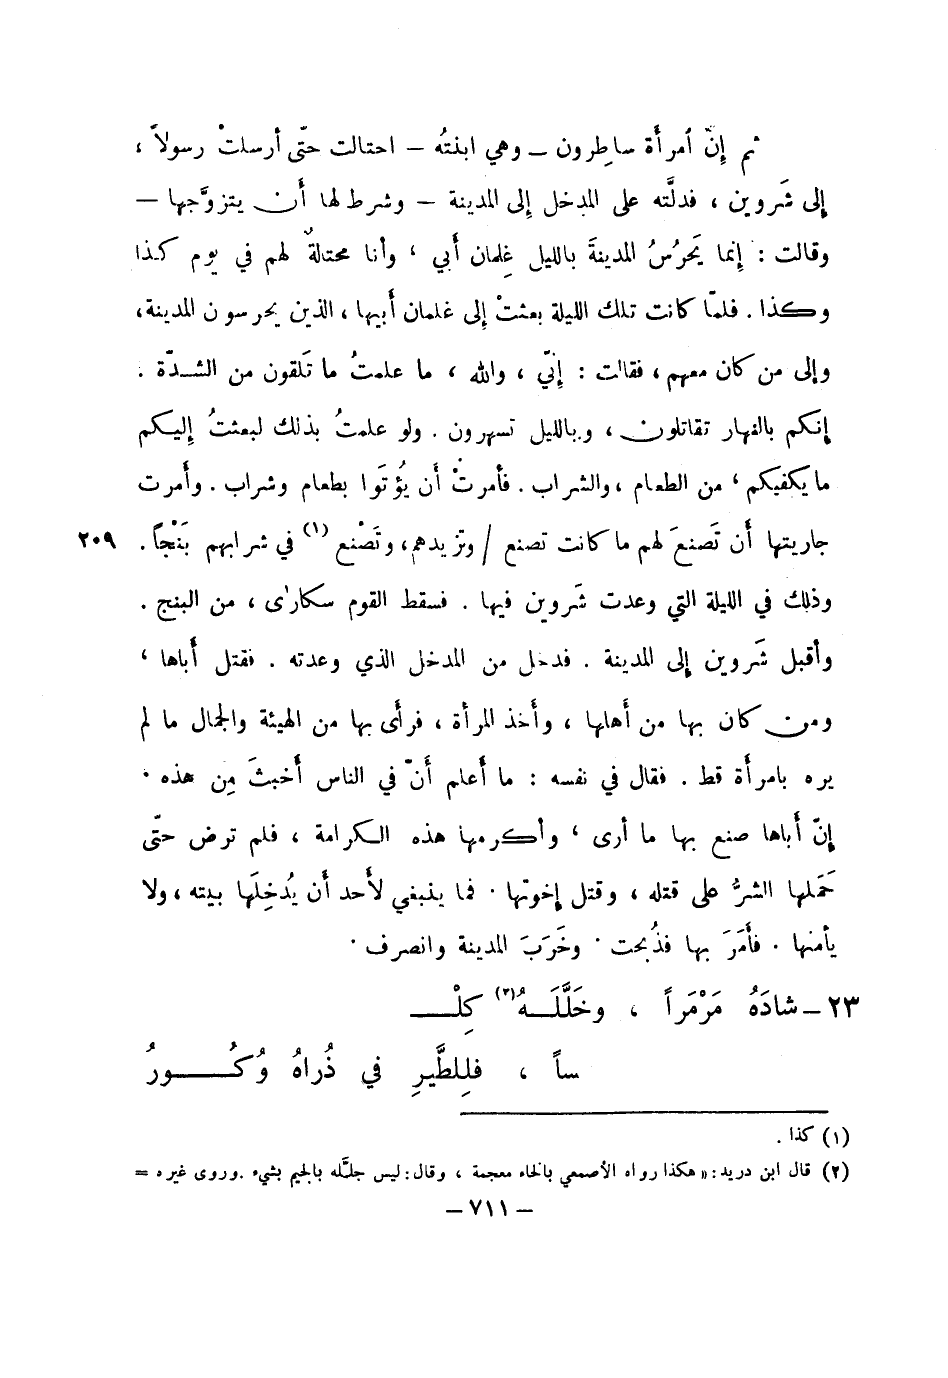 ثم إنّ آمرأة ساطرون – وهي ابنتُه – احتالت حتّى أرسلتْ رسولاً ،
إلى شَروين ، فدلَّته على المدخل إلى المدينة – وشرط لها أن يتزوَّجها –
وقالت : إنما يَحرُسُ المدينةَ بالليل غِلمان أبي ، وأنا محتالةٌ لهم في يوم كذا
وكذا . فلمّا كانت تلك الليلة بعثتْ إلى غلمان أبيها ، الذين يحرسون المدينة،
وإلى من كان معهم ، فقالت : إنّي ، والله ، ما علمتُ ما تَلقون من الشدّة .
إنكم بالنهار تقاتلون ، وبالليل تسهرون . ولو علمتُ بذلك لبعثتُ إليكم
ما يكفيكم ، من الطعام ، والشراب . فأمرتْ أن يُؤتَوا بطعام وشراب . وأمرت
جاريتها أن تَصنعَ لهم ما كانت تصنع / وتزيدهم، وتَصْنع (١) في شرابهم بَنْجاً . ٢٠٩
وذلك في الليلة التي وعدت شَروين فيها . فسقط القوم سكارٰى ، من البنج .
وأقبل شَروين إلى المدينة . فدخل من المدخل الذي وعدته . فقتل أباها ،
ومن كان بها من أهلها ، وأخذ المرأة ، فرأى بها من الهيئة والجمال ما لم
يره بامرأة قط . فقال في نفسه : ما أعلم أنّ في الناس أخبثَ مِن هذه .
إنّ أباها صنع بها ما أرى ، وأكرمها هذه الكرامة ، فلم ترض حتّى
حَمَلها الشرُّ على قتله ، وقتل إخوتها . فما ينبغي لأحد أن يُدخِلَها بيته ، ولا
يأمنها . فأمَرَ بها فذُبحت . وخَرَبَ المدينة وانصرف .
٢٣ – شادَهُ مَرْمَراً ، وخَلَّلَـــهُ(٢) كِلْـــ
ساً ، فلِلطَّيرِ في ذُراهُ وُكُـــورُ
(١) كذا .
(٢) قال ابن دريد: «هكذا رواه الأصمعي بالخاء معجمة ، وقال: ليس جلَّله بالجيم بشيء . وروى غيره =
– ٧١١ –